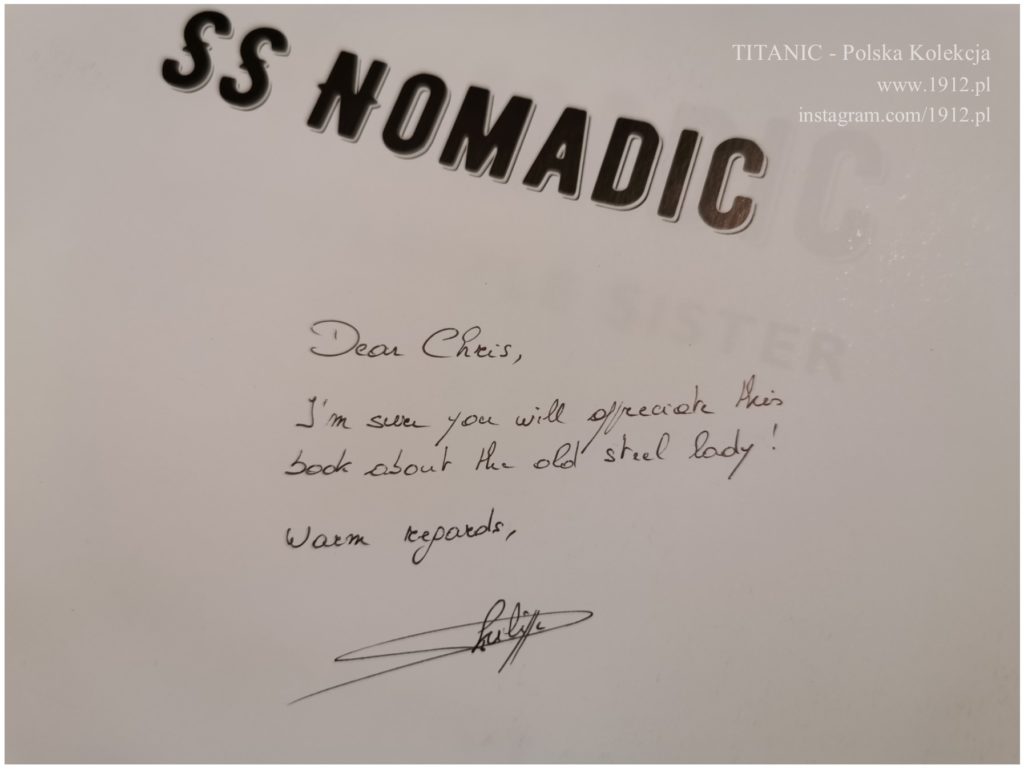 SS NOMADIC
TITANIC - Polska Kolekcja
www.1912.pl
instagram.com/1912.pl
DIC
LE SISTER
Dear Chris,
I'm sure you will appreciate this
book about the old steel lady!
Warm regards,